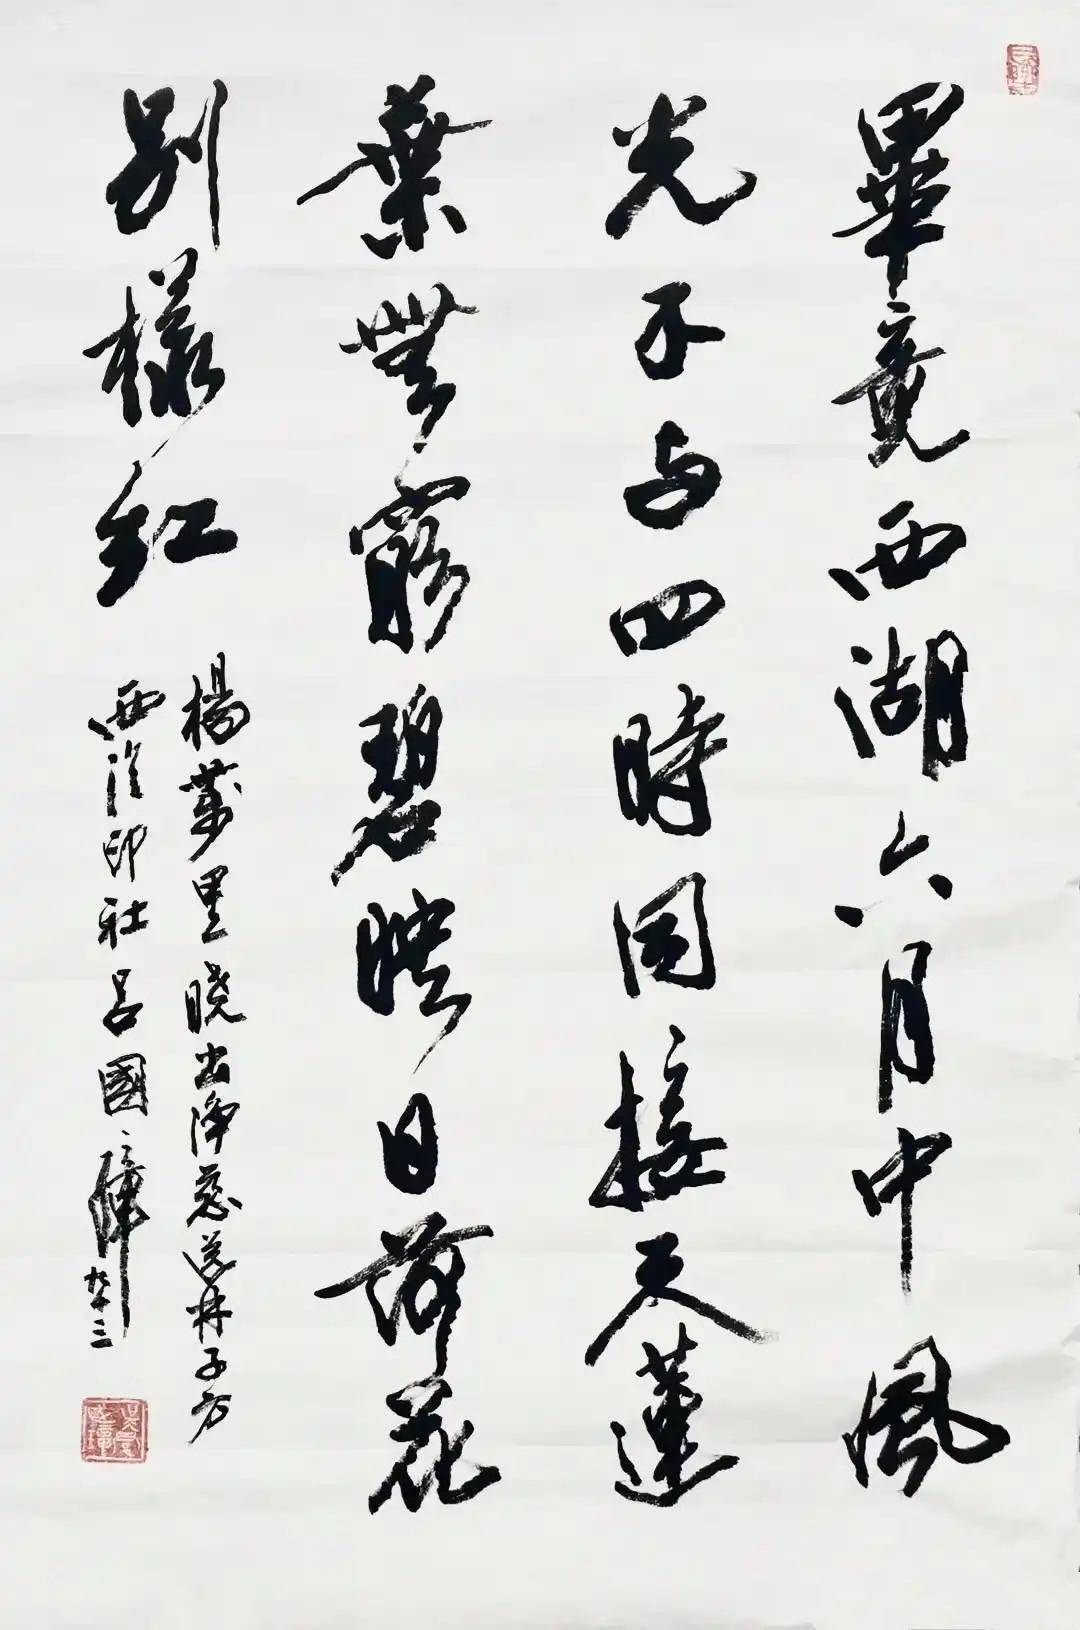 畢竟西湖六月中風
光不与四時同接天蓮
葉無窮碧映日荷花
別樣紅
楊萬里曉出淨慈送林子方
西泠印社呂國璋九十三